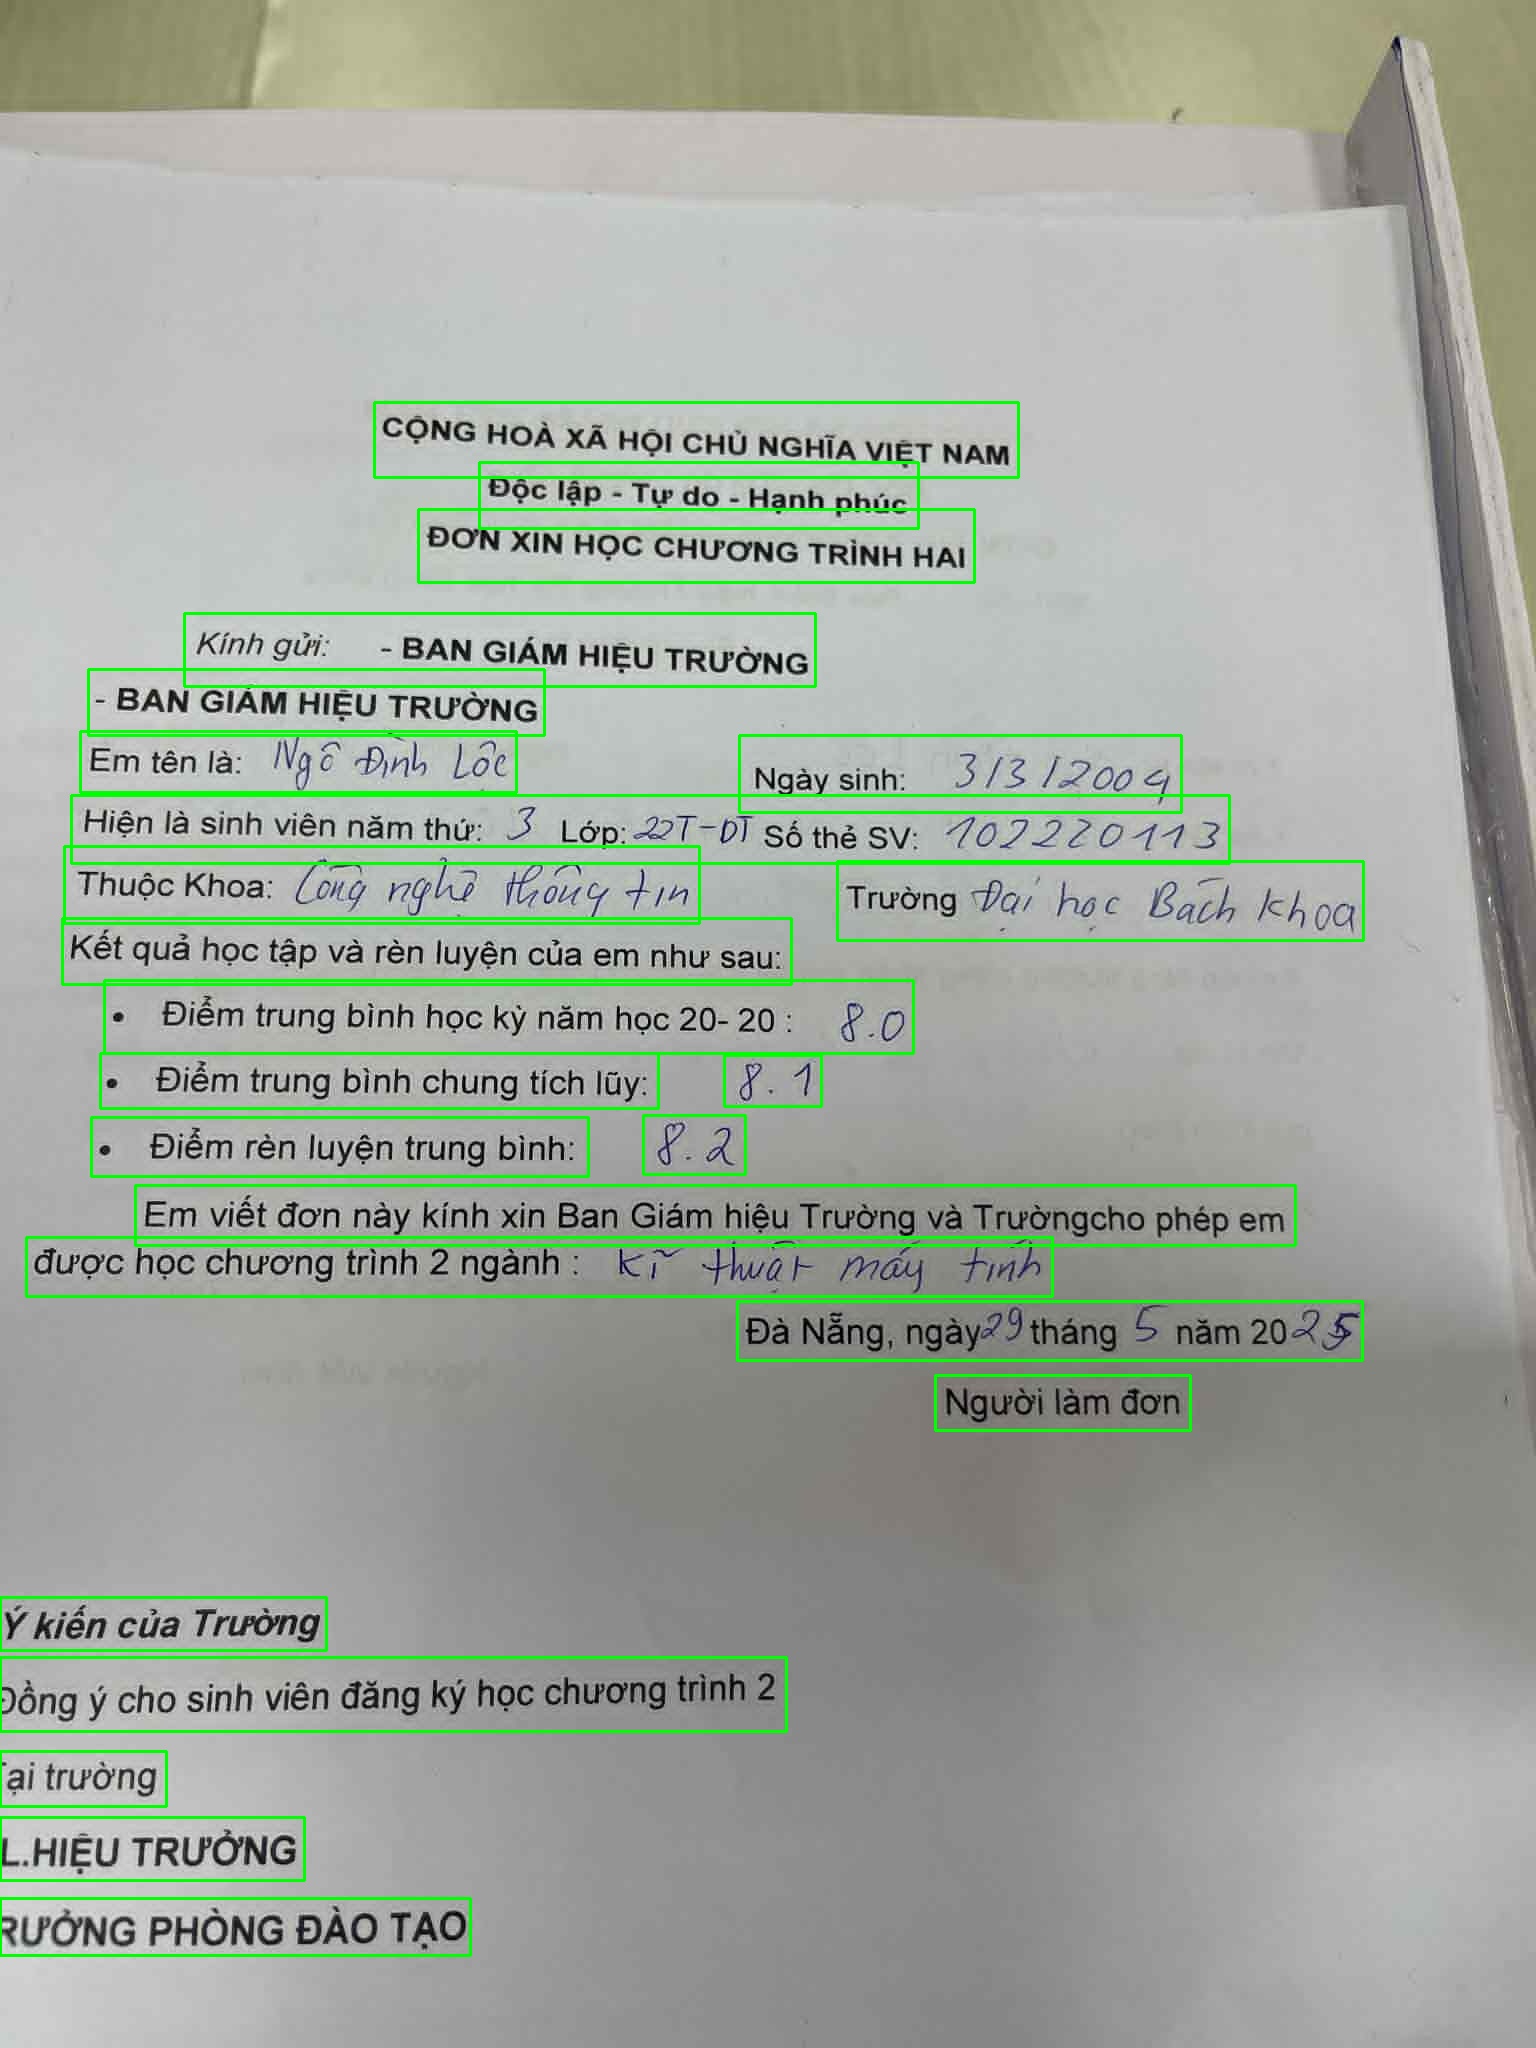 CỘNG HOÀ XÃ HỘI CHỦ NGHĨA VIỆT NAM
Độc lập - Tự do - Hạnh phúc
ĐƠN XIN HỌC CHƯƠNG TRÌNH HAI
Kính gửi: - BAN GIÁM HIỆU TRƯỜNG
- BAN GIÁM HIỆU TRƯỜNG
Em tên là: Ngô Đình Lộc Ngày sinh: 3/3/2004
Hiện là sinh viên năm thứ: 3 Lớp: 22T-DT Số thẻ SV: 102220113
Thuộc Khoa: Công nghệ thông tin Trường Đại học Bách khoa
Kết quả học tập và rèn luyện của em như sau:
• Điểm trung bình học kỳ năm học 20- 20 : 8.0
• Điểm trung bình chung tích lũy: 8.1
• Điểm rèn luyện trung bình: 8.2
Em viết đơn này kính xin Ban Giám hiệu Trường và Trườngcho phép em
được học chương trình 2 ngành : kĩ thuật máy tính
Đà Nẵng, ngày 29 tháng 5 năm 2025
Người làm đơn
Ý kiến của Trường
Đồng ý cho sinh viên đăng ký học chương trình 2
Tại trường
L.HIỆU TRƯỞNG
RƯỞNG PHÒNG ĐÀO TẠO